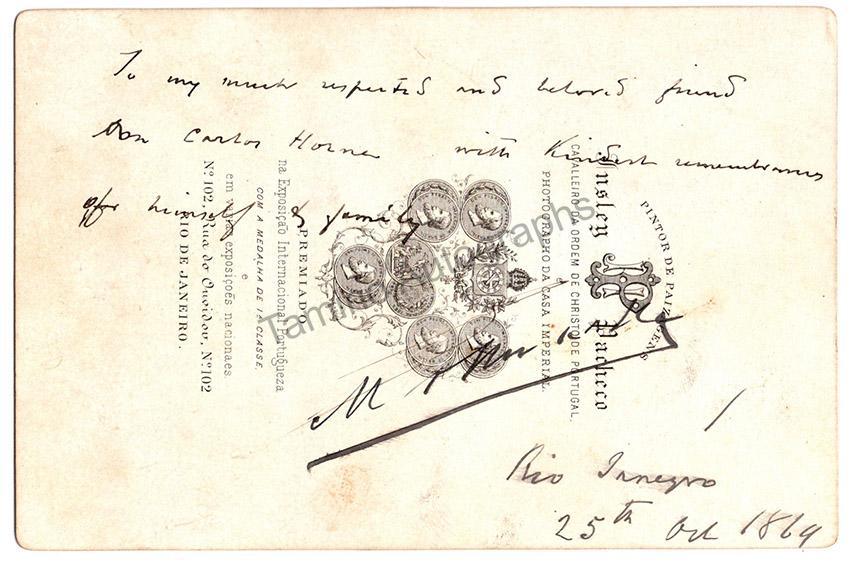 To my much respected and beloved friend
Don Carlos Horner with Kindest remembrances
for himself & family
M
Rio Janeyro
25th Oct 1869
PINTOR DE PAIZAGENS
Insley Pacheco
CAVALLEIRO DA ORDEM DE CHRISTO DE PORTUGAL,
PHOTOGRAPHO DA CASA IMPERIAL.
PREMIADO
na Exposição Internacional Portugueza
COM A MEDALHA DE 1ª CLASSE,
e
em varias exposições nacionaes.
Nº 102, Rua do Ouvidor, Nº 102
RIO DE JANEIRO.
Tamino Autographs